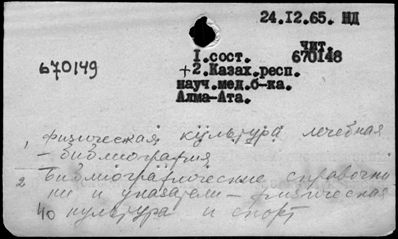 24.I2.65. НД
чит.
I.сост. 670148
670149
+2.Казах.респ.
науч.мед.б-ка.
Алма-Ата.
1, физическая культура лечебная
- библиография
2 библиографические справочни
ки и указатели - физическая
40 культура и спорт